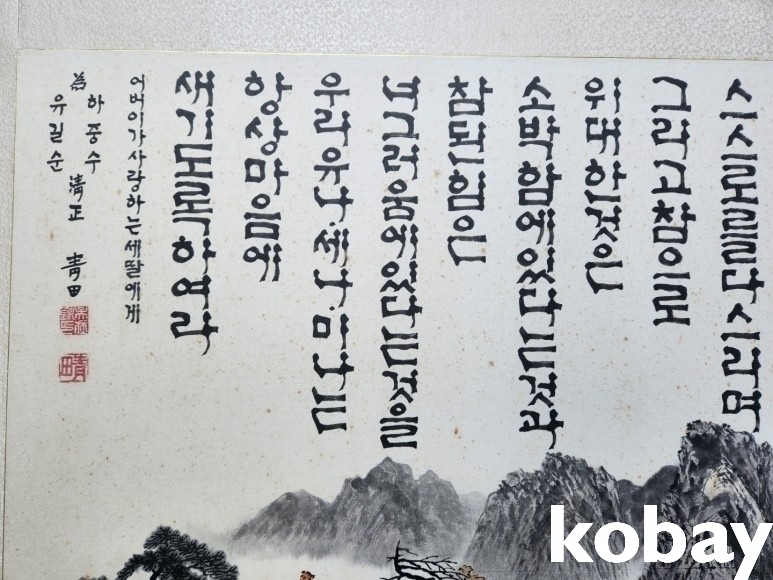 스스로를다스리며
그리고참으로
위대한것은
소박함에있다는것과
참된힘은
너그러움에있다는것을
우리유나.세나.미나는
항상마음에
새기도록하여라
어버이가사랑하는세딸에게
爲 하중수
유길순
清正 青田
青田
kobay